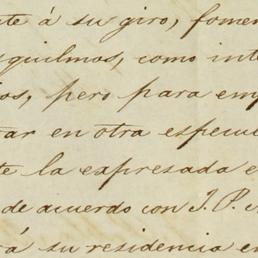 te á su giro, fomen
squilmos, como inte
os, pero para emp
tar en otra especul
te la expresada e
de acuerdo con J. P.
rá su residencia en